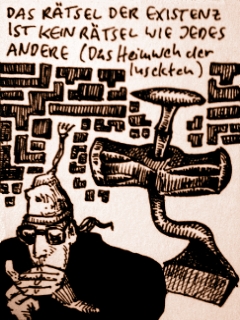 DAS RÄTSEL DER EXISTENZ
IST KEIN RÄTSEL WIE JEDES
ANDERE (Das Heimweh der
Insekten)